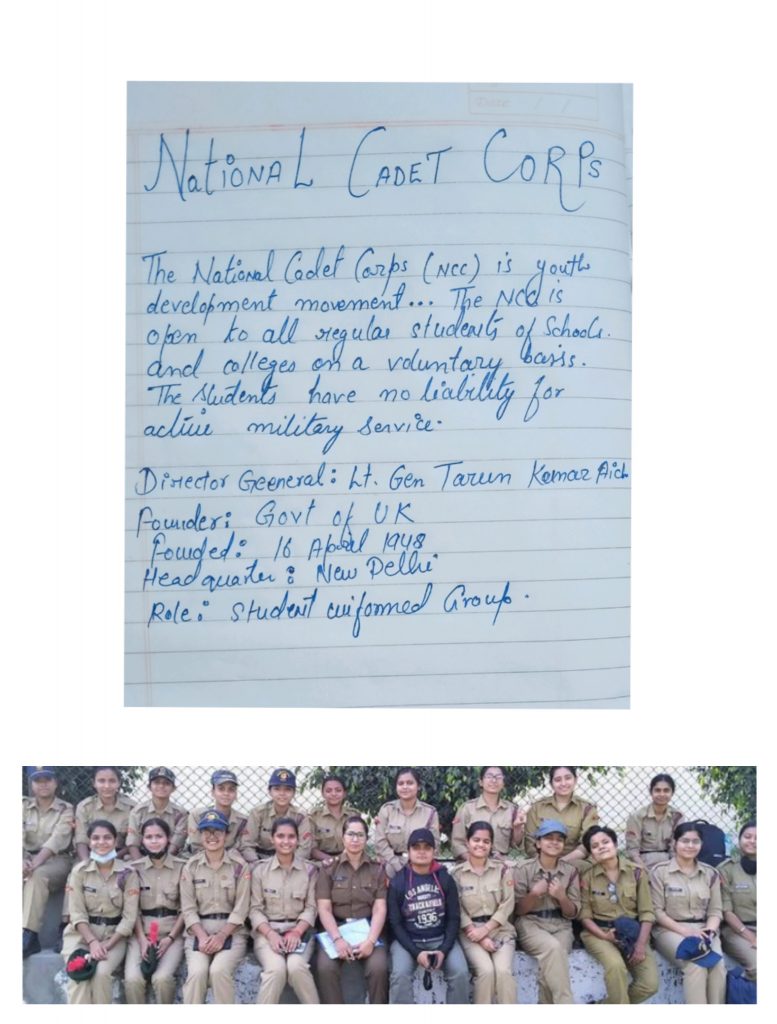 Date / /
NatIONAL CADET CORPs
The National Cadet Corps (NCC) is youth
development movement... The NCC is
open to all regular students of Schools.
and colleges on a voluntary basis.
The students have no liability for
active military service.
Director Geeneral: Lt. Gen Tarun Kumar Aich
Founder: Govt of UK
Founded: 16 April 1948
Headquarter : New Delhi
Role: Student uniformed Group.
LOS ANGELES
TRACK & FIELD
1936